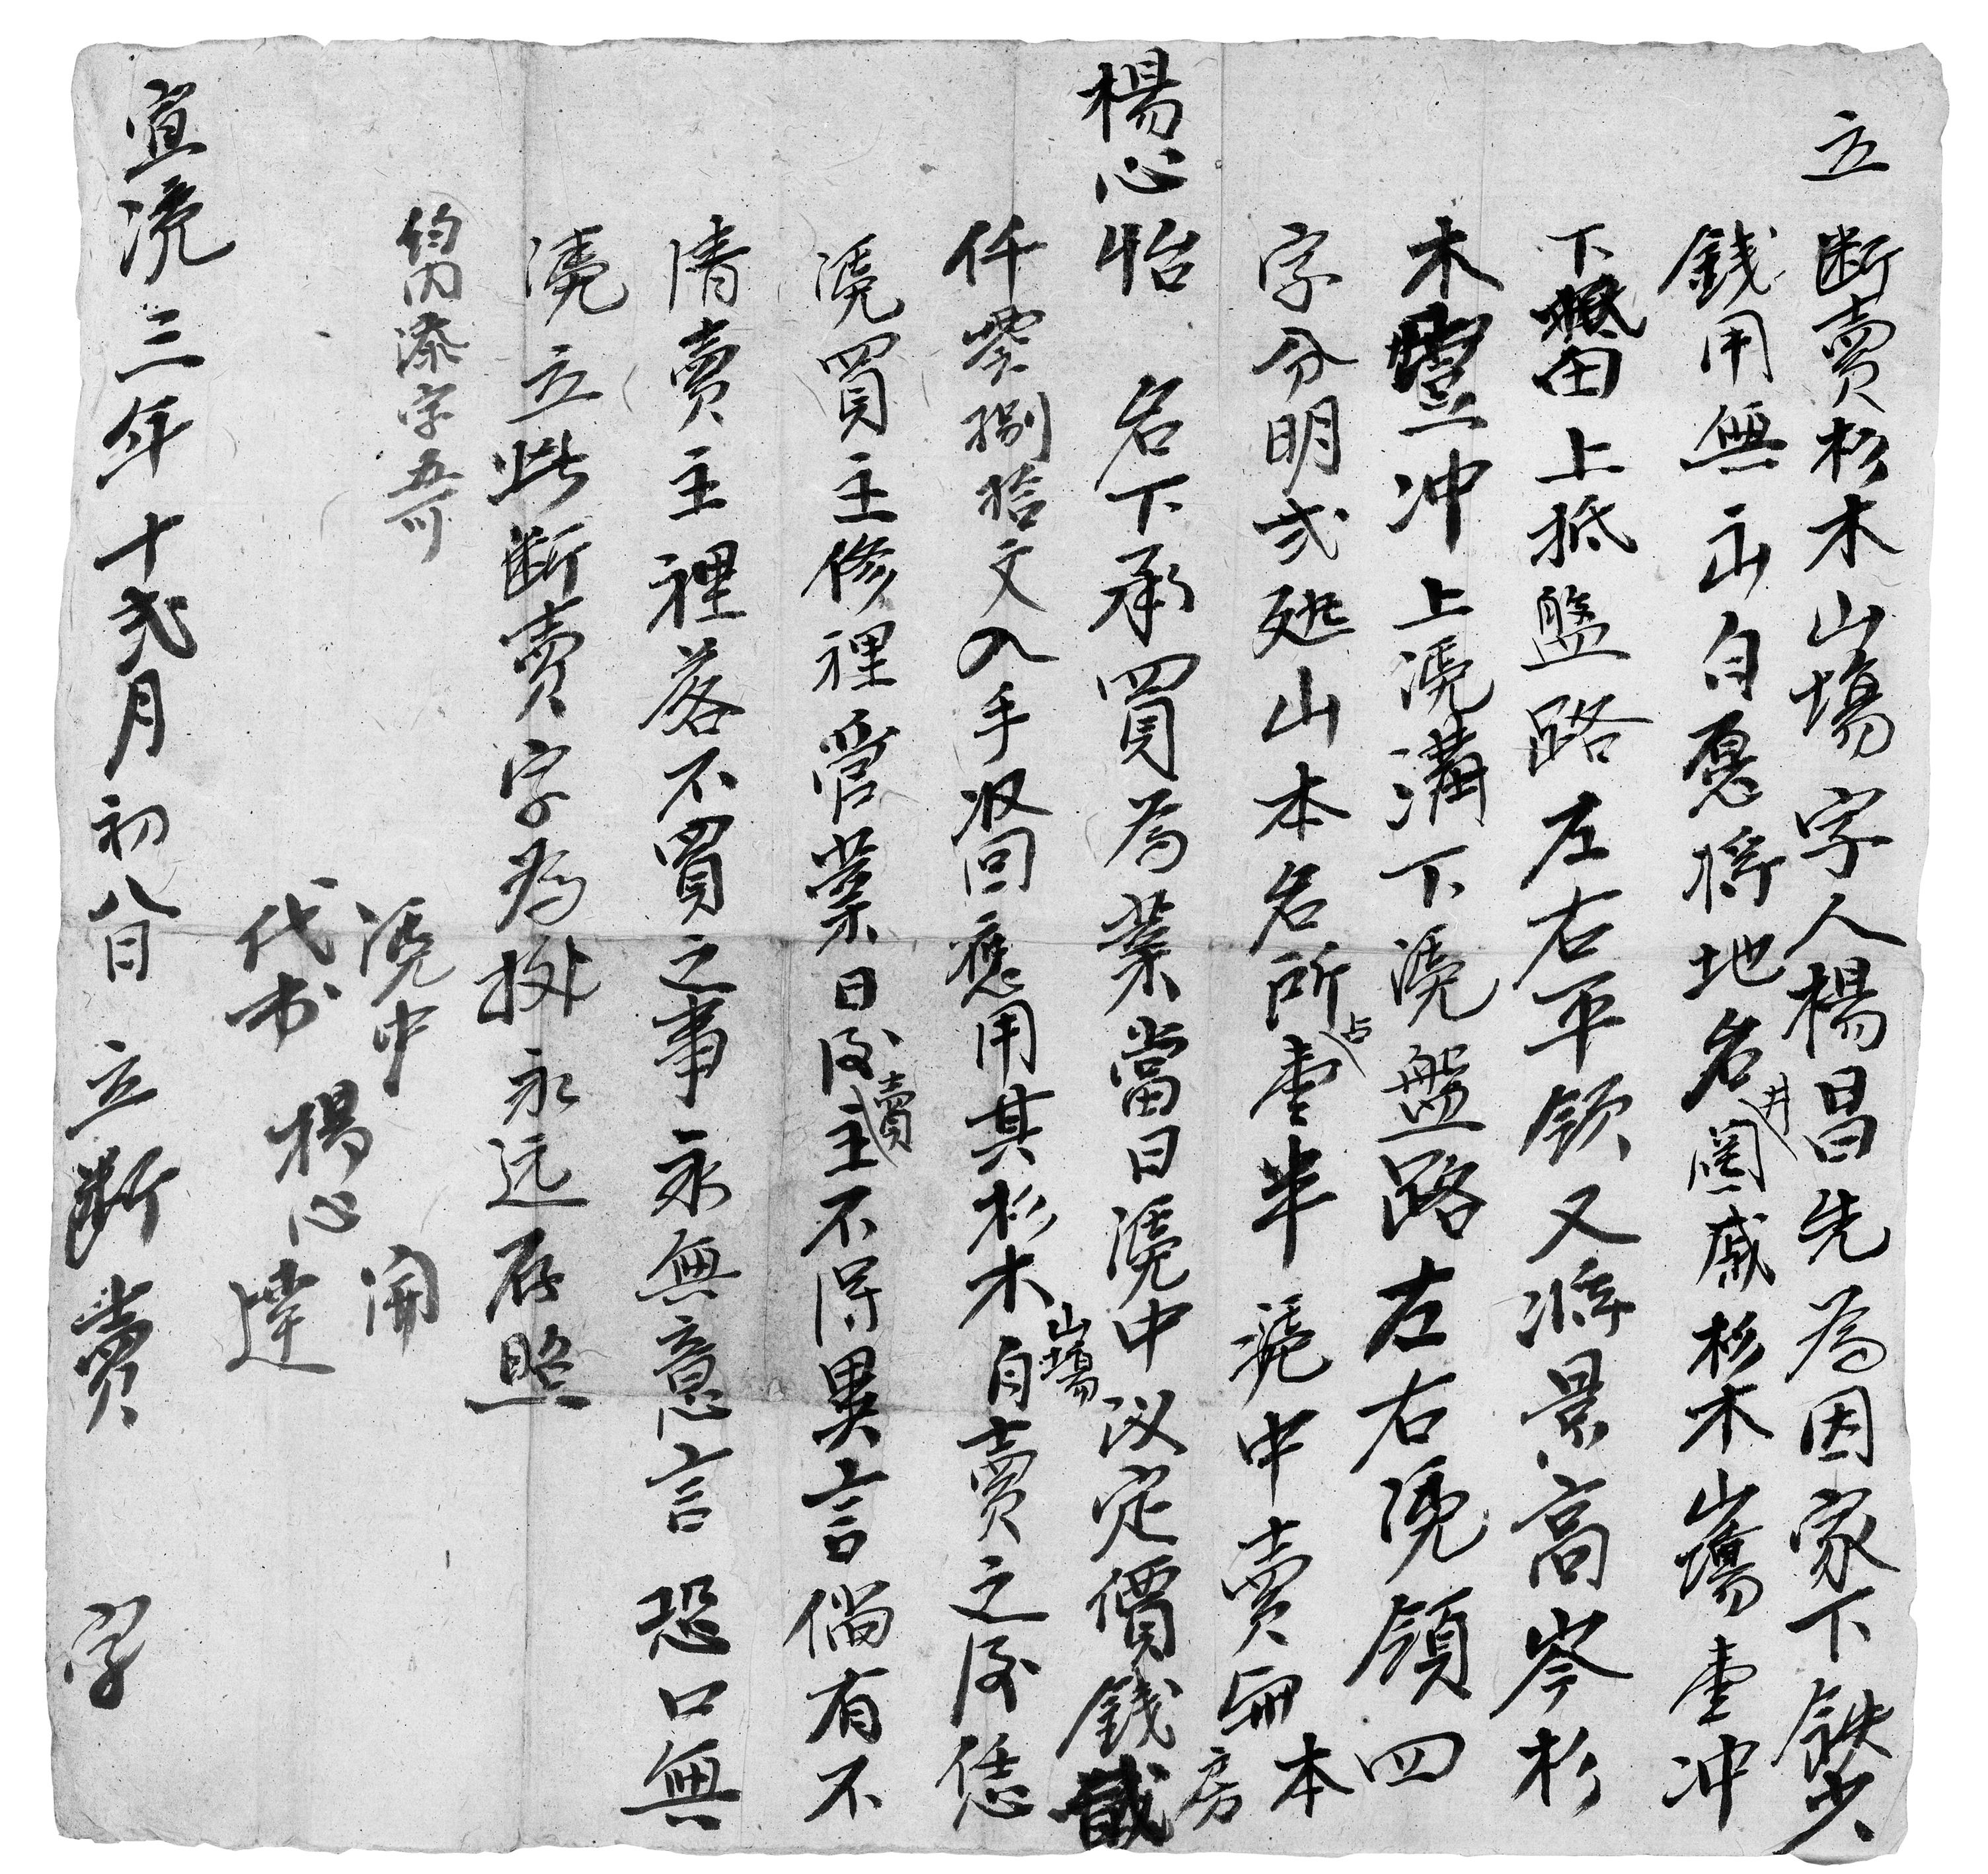 立断賣杉木山塲字人楊昌先為因家下缺少
錢用無出自愿將地名井圂戚杉木山塲壹冲
下抵田上抵盤路左右平領又將景高岑杉
木壹冲上凴溝下凴盤路左右凴領四
字分明弍処山本名所占壹半凴中賣與本房
楊心怡名下承買為業當日凴中议定價錢貳
仟零捌拾文入手收回應用其杉木山塲自賣之后恁
凴買主修裡管業日后賣主不得異言倘有不
清賣主裡落不買之事永無意言恐口無
凴立此断賣字為挀永远存照
約内添字五个
凴中 開
楊心
代书 達
宣凴三年十弍月初八日立断賣字